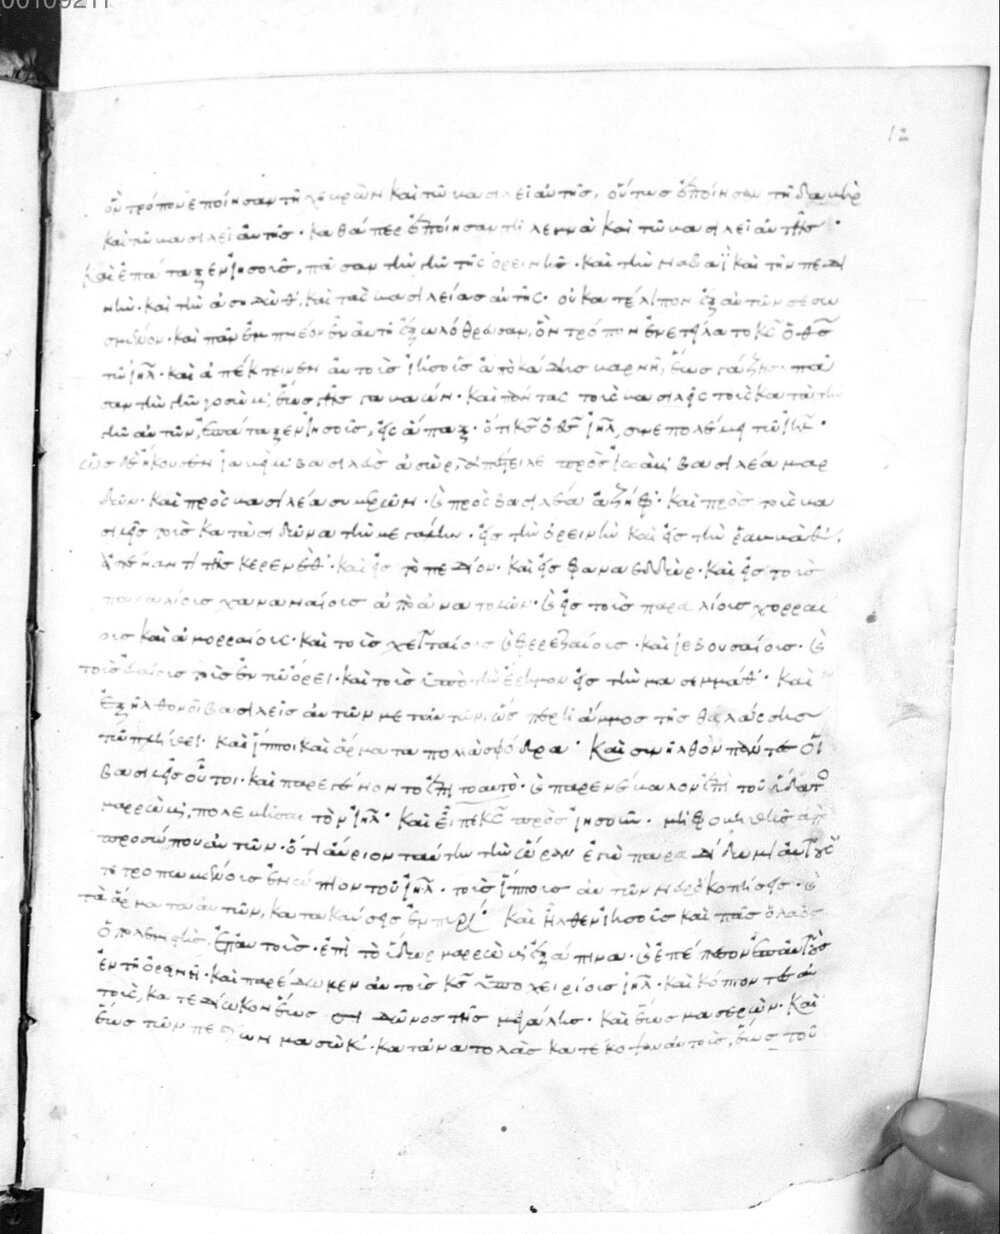 00109211
12
ὃν τρόπον ἐποίησαν τῆ χεβρὼν καὶ τῶ βασιλεῖ αὐτῆς, οὕτως ἐποίησαν τῆ δαβὶρ
καὶ τῶ βασιλεῖ αὐτῆς· καθάπερ ἐποίησαν τῆ λεμνᾶ καὶ τῶ βασιλεῖ αὐτῆς·
Καὶ ἐπάταξεν ἰησοῦς, πᾶσαν τὴν γῆν τῆς ὀρεινῆς· καὶ τὴν ναβαῒ καὶ τὴν πεδι
νὴν· καὶ τὴν ἀσηδὼθ, καὶ τοὺς βασιλείας αὐτῆς· οὐ κατέλιπον ἐξ αὐτῶν σεσω
σμένον· καὶ πᾶν ἐμπνέον ἐν αὐτῆ ἐξωλόθρευσαν, ὃν τρόπον ἐνετείλατο κς ὁ θς
τῶ ιηλ· καὶ ἀπέκτεινεν αὐτοὺς ἰησοῦς ἀπὸ κάδης βαρνῆ, ἕως γάζης· πᾶ
σαν τὴν γῆν γοσὼμ, ἕως τῆς γαβαών· καὶ πάντας τοὺς βασιλεῖς τούτους καὶ τὴν
γῆν αὐτῶν, ἐπάταξεν ἰησοῦς, εἰς ἅπαξ· ὅτι κς ὁ θς ιηλ, συνεπολέμει τῶ ιηλ·
ὡς δὲ ἤκουσεν ἰαβεὶμ βασιλεὺς ἀσὼρ, ἀπέστειλε πρὸς ἰωβὰμ βασιλέα μαρ
ρὼν· καὶ πρὸς βασιλέα συμερῶν· καὶ πρὸς βασιλέα ἀζήφ· καὶ πρὸς τοὺς βα
σιλεῖς τοὺς κατὰ σιδῶνα τὴν μεγάλην· εἰς τὴν ὀρεινὴν καὶ εἰς τὴν ῥαμμάθ,
ἀπέναντι τῆς κερενὲθ· καὶ εἰς τὸ πεδίον· καὶ εἰς φαναεδδὼρ· καὶ εἰς τοὺς
παραλίους χαναναίους ἀπὸ ἀνατολῶν· καὶ εἰς τοὺς παραλίους χορραί
ους καὶ ἀμορραίους· καὶ τοὺς χετταίους καὶ φερεζαίους· καὶ ἰεβουσαίους· καὶ
τοὺς εὐαίους τοὺς ἐν τῶ ὄρει· καὶ τοὺς ὑπὸ τὴν ἔρημον εἰς τὴν μασεμμάθ· Καὶ
ἐξῆλθον οἱ βασιλεῖς αὐτῶν μετ' αὐτῶν, ὥσπερ ἡ ἄμμος τῆς θαλάσσης
τῶ πλήθει· καὶ ἵπποι καὶ ἅρματα πολλὰ σφόδρα· Καὶ συνῆλθον πάντες οἱ
βασιλεῖς οὗτοι· καὶ παρεγένοντο ἐπὶ τὸ αὐτὸ· καὶ παρενέβαλον ἐπὶ τοῦ ὕδατος
μαρρὼμ, πολεμῆσαι τὸν ιηλ· Καὶ εἶπε κς πρὸς ἰησοῦν· μὴ φοβηθῆς ἀπὸ
προσώπου αὐτῶν· ὅτι αὔριον ταύτην τὴν ὥραν ἐγὼ παραδίδωμι αὐτοὺς
τετροπωμένους ἐνώπιον τοῦ ιηλ· τοὺς ἵππους αὐτῶν νευροκοπήσεις· καὶ
τὰ ἅρματα αὐτῶν, κατακαύσεις ἐν πυρί· Καὶ ἦλθεν ἰησοῦς καὶ πᾶς ὁ λαὸς
ὁ πολεμιστὴς ἐπ' αὐτοὺς· ἐπὶ τὸ ὕδωρ μαρρὼμ ἐξάπινα· καὶ ἐπέπεσον ἐπ' αὐτοὺς
ἐν τῆ ὀρεινῆ· καὶ παρέδωκεν αὐτοὺς κς ὑποχειρίους ιηλ· καὶ κόπτοντες αὐ
τοὺς, κατεδίωκον ἕως σιδῶνος τῆς μεγάλης· καὶ ἕως μασερὼν· Καὶ
ἕως τῶν πεδίων μασὼκ· κατὰ ἀνατολὰς κατέκοψαν αὐτοὺς, ἕως τοῦ